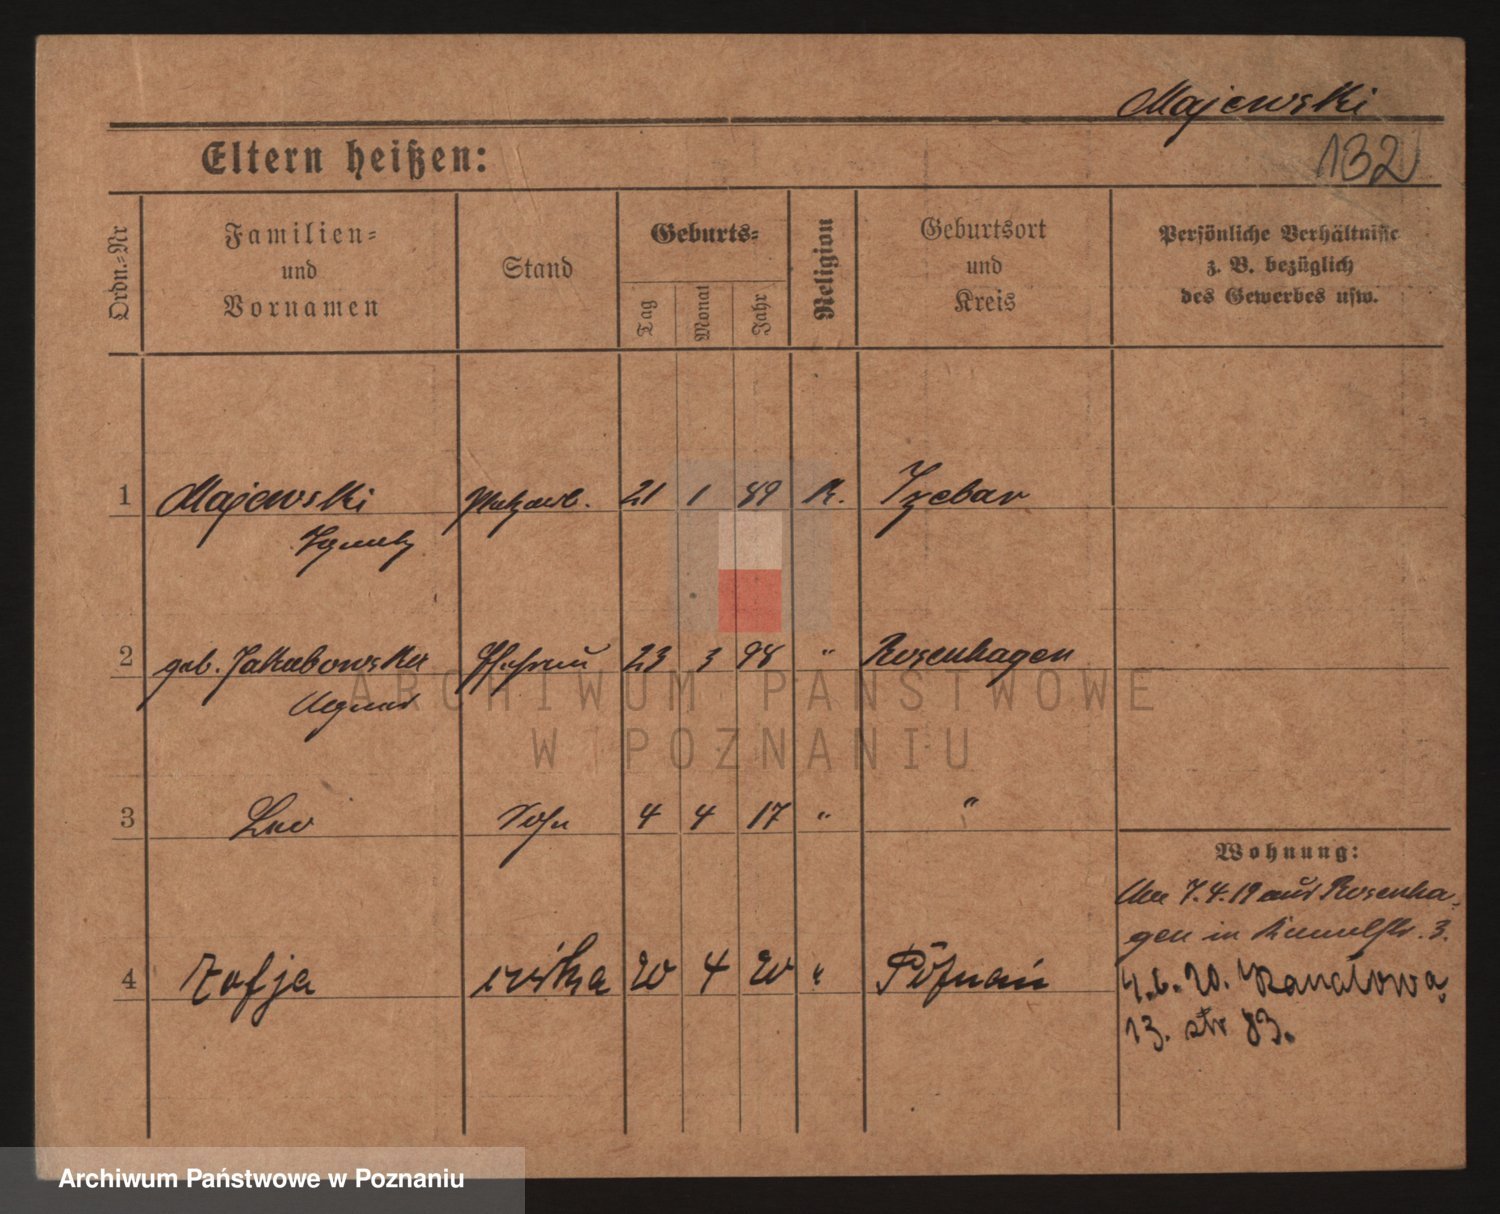 Majewski
132
Eltern heißen:
Ordn.=Nr
Familien=
und
Vornamen
Stand
Geburts=
Tag
Monat
Jahr
Religion
Geburtsort
und
Kreis
Persönliche Verhältnisse
z. B. bezüglich
des Gewerbes usw.
1 Majewski 21 1 89 K.
2 geb. Jakubowska Ehefrau 23 3 98 " Rosenhagen
3 Leo Sohn 4 4 17 " "
Wohnung:
7.4.19 aus Rosenha=
gen in 3.
4 Zofja córka 20 4 20 " Poznań
4.6.20. Kanałowa
13. str 83.
ARCHIWUM PAŃSTWOWE
W POZNANIU
Archiwum Państwowe w Poznaniu